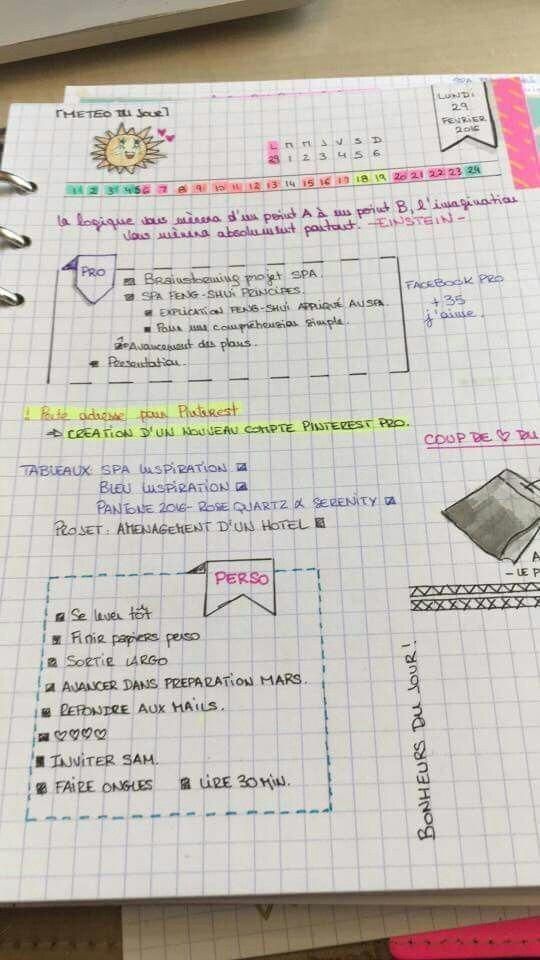 LUNDI
29
FEVRIER
2016
[METEO DU JOUR]
L M M J V S D
29 1 2 3 4 5 6
1 2 3 4 5 6 7 8 9 10 11 12 13 14 15 16 17 18 19 20 21 22 23 24
La logique vous mènera d'un point A à un point B, l'imagination
vous mènera absolument partout. -EINSTEIN-
PRO
Brainstorming projet SPA.
SPA FENG-SHUI PRINCIPES.
EXPLICATION FENG-SHUI APPLIQUÉ AU SPA
Pour une compréhension simple.
Avancement des plans.
Présentation.
FACEBOOK PRO
+35
j'aime.
! Perte adresse pour Pinterest
⇒ CREATION D'UN NOUVEAU COMPTE PINTEREST PRO.
COUP DE ♡ DU
TABLEAUX: SPA INSPIRATION
BLEU INSPIRATION
PANTONE 2016- ROSE QUARTZ & SERENITY
PROJET: AMENAGEMENT D'UN HOTEL
A
- LE P
PERSO
Se lever tôt
Finir papiers perso
SORTIR LARGO
AVANCER DANS PREPARATION MARS.
REPONDRE AUX MAILS.
♡♡♡♡
INVITER SAM.
FAIRE ONGLES LIRE 30 MIN.
BONHEURS DU JOUR!